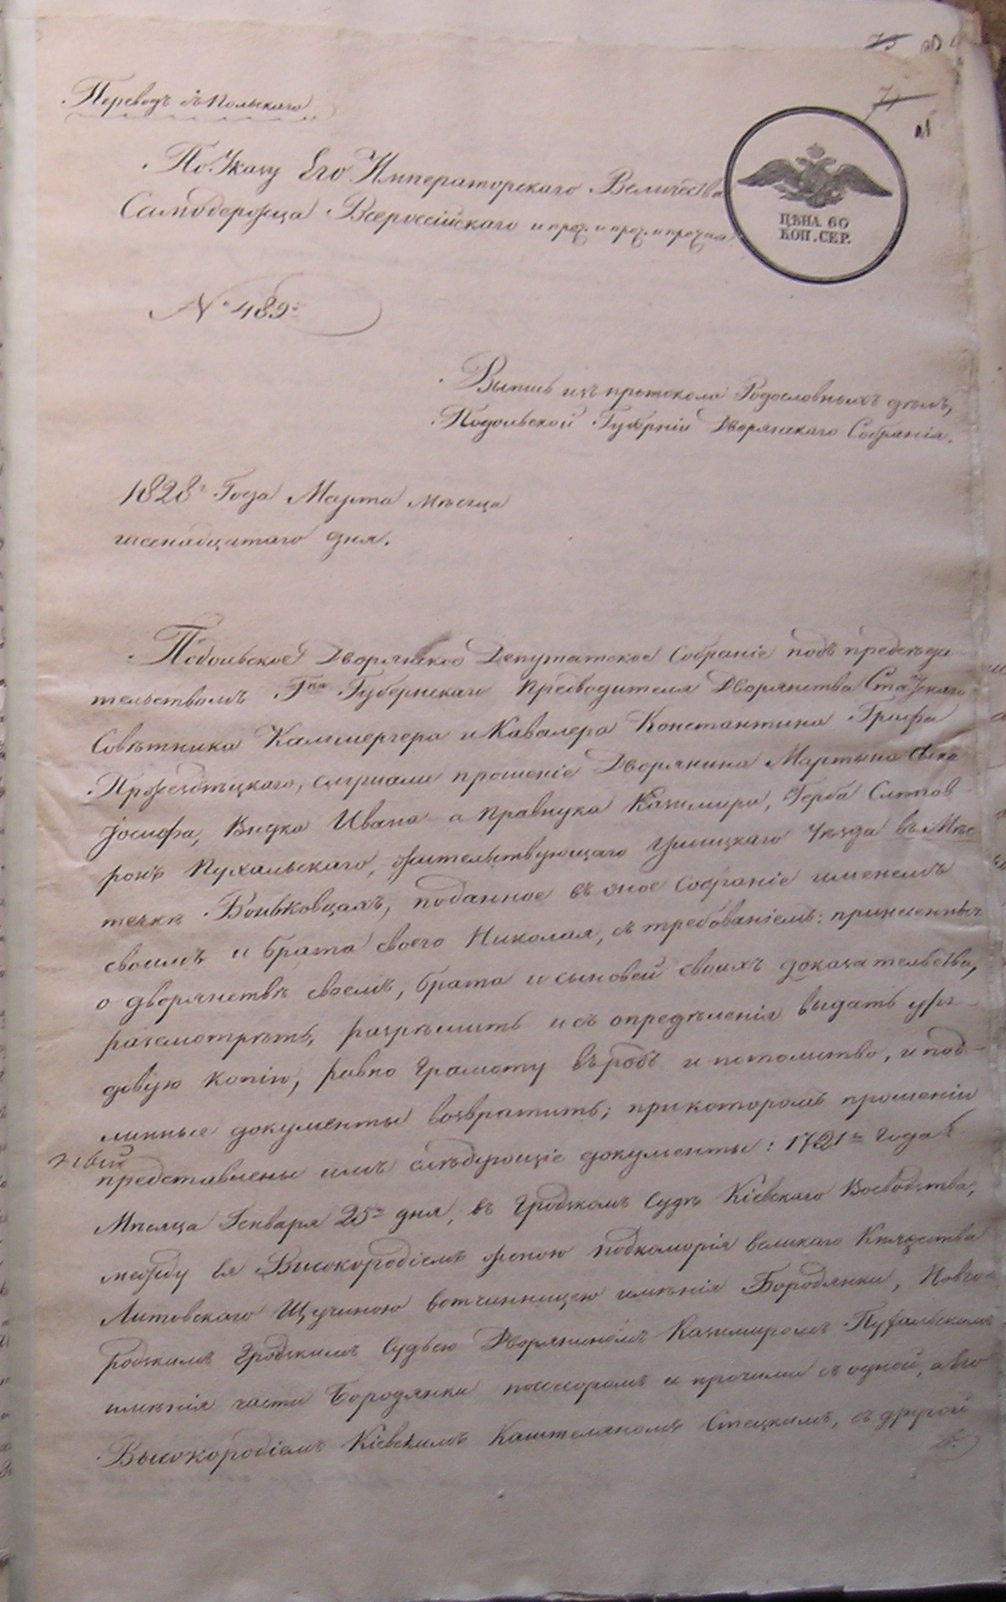 Переводъ съ Польскаго
По Указу Его Императорскаго Величества
Самодержца Всероссійскаго и проч. и проч. и прочая
ЦѢНА 60
КОП. СЕР.
№ 489
Выпись изъ протокола Родословныхъ дѣлъ,
Подольской Губерніи Дворянскаго Собранія.
1828 Года Марта мѣсяца
шеснадцатаго дня.
Подольское Дворянское Депутатское Собраніе подъ предсѣда
тельствомъ Гна Губернскаго Предводителя Дворянства Статскаго
Совѣтника Каммергера и Кавалера Константина Графа
Пржездѣцкаго, слушали прошеніе Дворянина Мартына сына
Іосифа, Внука Ивана а Правнука Казимира, Герба Слѣпов
ронъ Пухальскаго, жительствующаго Ушицкаго Уѣзда въ Мѣс
течкѣ Воньковцахъ, поданное въ оное Собраніе именемъ
своимъ и брата своего Николая, съ требованіемъ:
о дворянствѣ своемъ, брата и сыновей своихъ доказательства,
разсмотрѣть, разрѣшить и съ опредѣленія выдать уря
довую копію, равно Грамоту въ родъ и потомство, и под
линные документы возвратить; при которомъ прошеніи
представлены имъ слѣдующіе документы: 1721 года
Мѣсяца Генваря 25 дня, въ Гродскомъ Судѣ Кіевскаго Воеводства,
между Ея Высокородіемъ женою подкоморія великаго Княжества
Литовскаго Щучиною вотчинницею имѣнія Бородянки, Новго
родскимъ Гродскимъ Судьею Дворяниномъ Казимиромъ Пухальскимъ
имѣнія части Бородянки поссесоромъ и прочими съ одной, а Его
Высокородіемъ Кіевскимъ Каштеляномъ Стецкимъ, съ другой